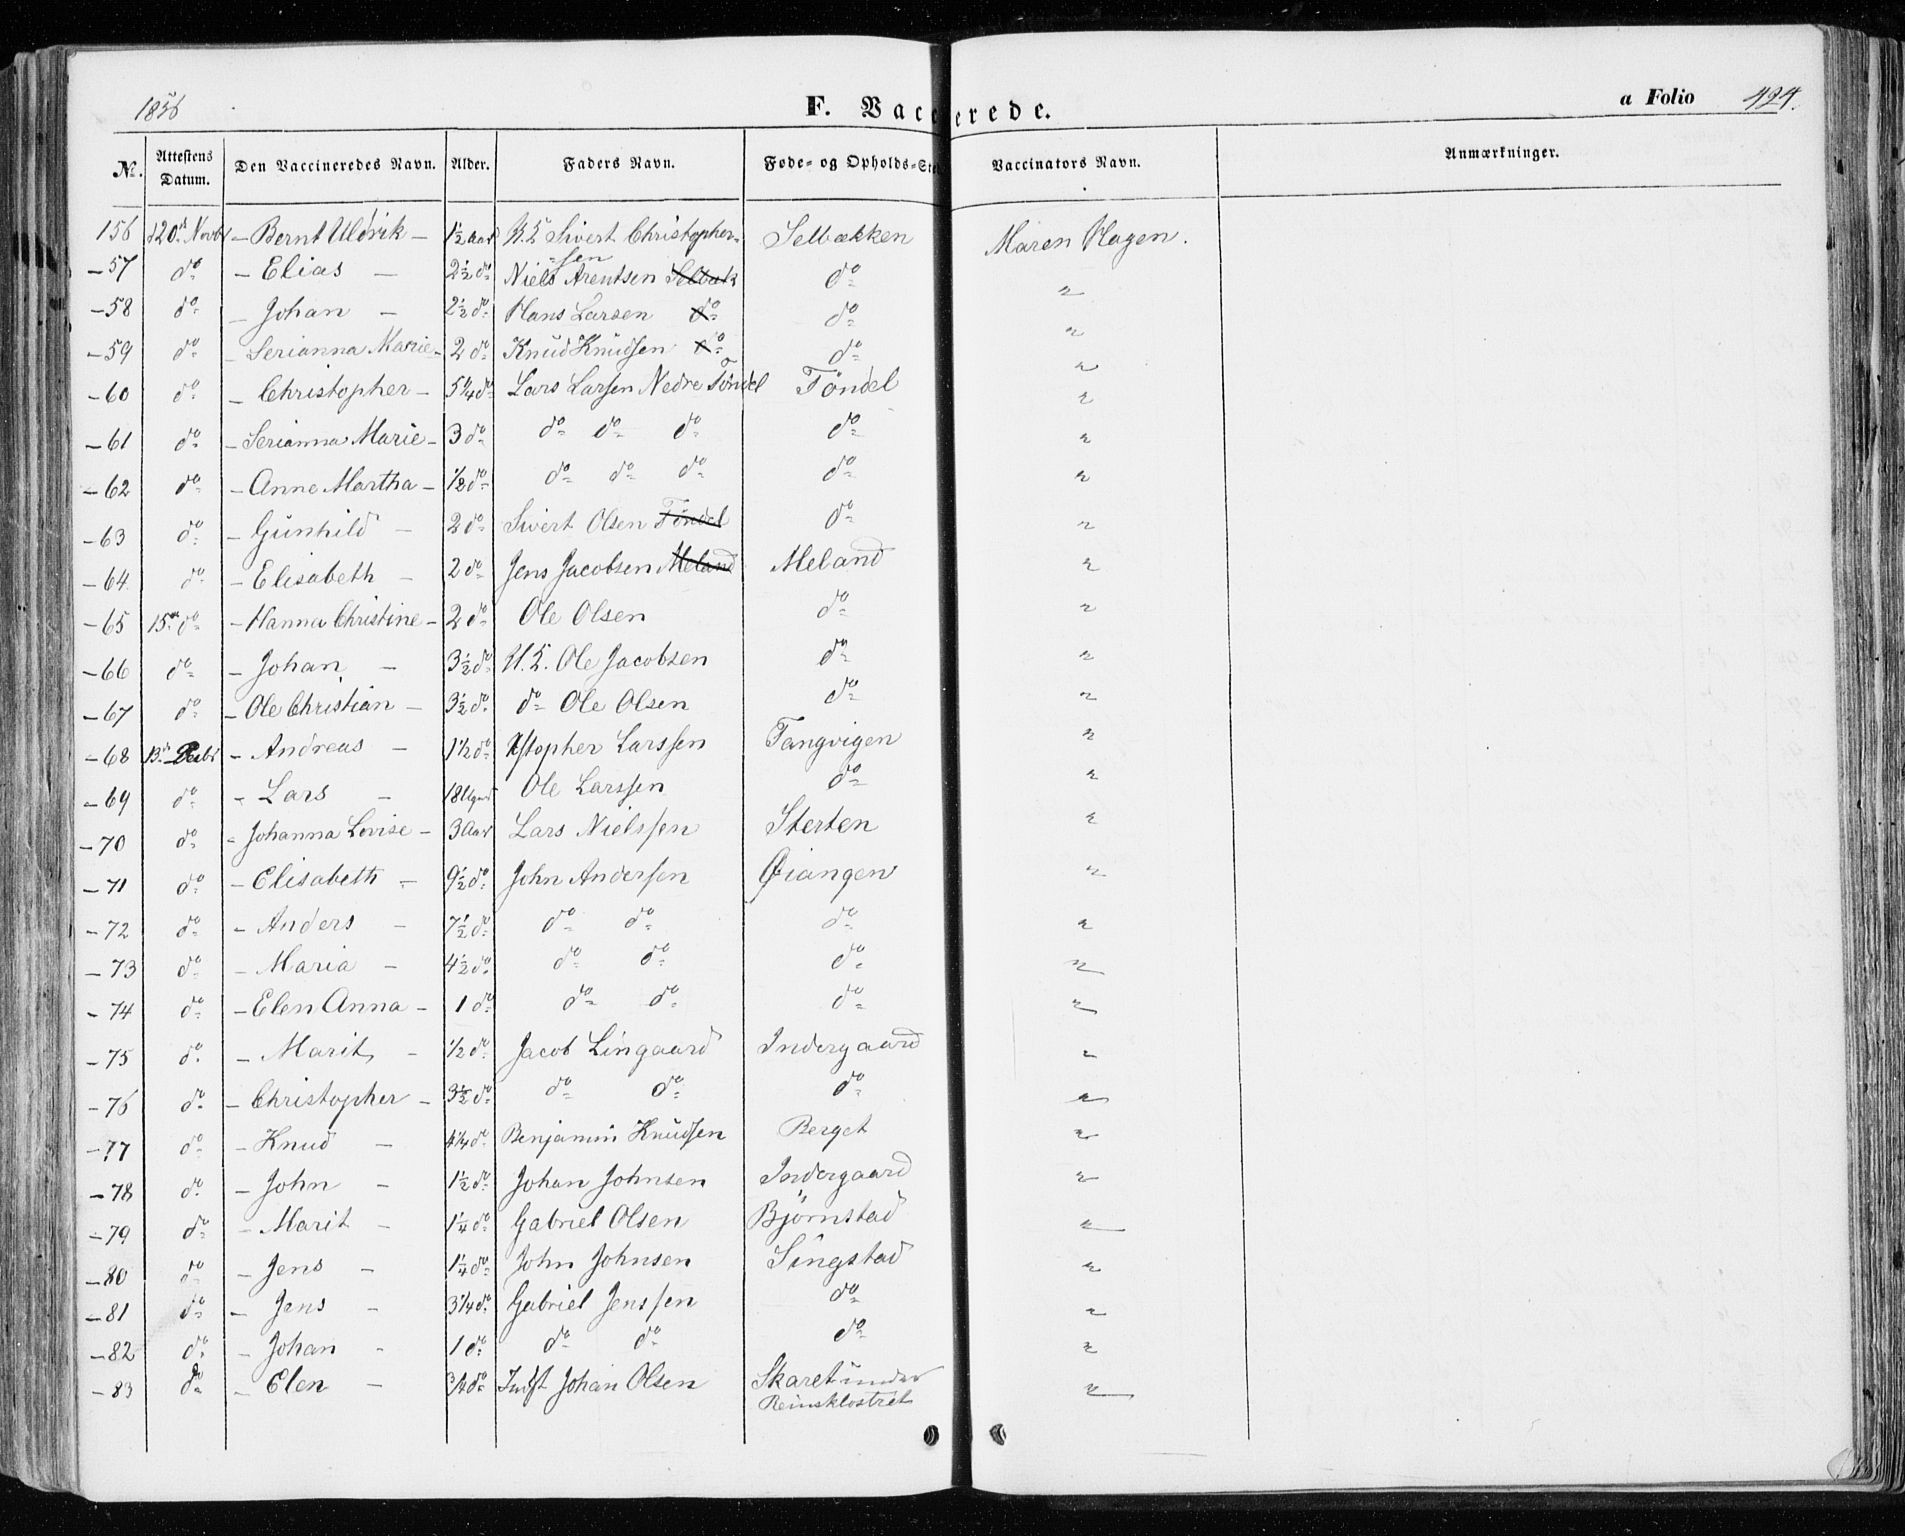 1856 F. Vaccinerede. a Folio 424.
No. Attestens Datum. Den Vaccineredes Navn. Alder. Faders Navn. Føde- og Opholds-Sted Vaccinators Navn. Anmærkninger.
156 20de Novbr – Bernt Uldrik – 1½ Aar Sivert Christopher- Selbækken Maren Hagen.
–57 do – Elias – 2½ do sen Niels Arentsen Selbæk do "
–58 do – Johan – 2½ do Hans Larsen do do "
–59 do – Serianna Marie – 2 do Knud Knudsen do do "
–60 do – Christopher – 5¼ do Lars Larsen Nedre Töndel Töndel "
–61 do – Serianna Marie – 3 do do do do do "
–62 do – Anne Martha – ½ do do do do do "
–63 do – Gunhild – 2 do Sivert Olsen Töndel do "
–64 do – Elisabeth – 2 do Jens Jacobsen Meland Meland "
–65 15de do – Hanna Christine – 2 do Ole Olsen do "
–66 do – Johan – 3½ do Ole Jacobsen do "
–67 do – Ole Christian – 3½ do do Ole Olsen do "
–68 13de Decbr – Andreas – 1½ do Xstopher Larssen Tangvigen "
–69 do – Lars – 18 Ole Larssen do "
–70 do – Johanna Lovise – 3 Aar Lars Nielssen Sterten "
–71 do – Elisabeth – 9½ do John Andersen Øiangen "
–72 do – Anders – 7½ do do do do "
–73 do – Maria – 4½ do do do do "
–74 do – Elen Anna – 1 do do do do "
–75 do – Marit – ½ do Jacob Lingaard Indergaard "
–76 do – Christopher – 3½ do do do do "
–77 do – Knud – 4¼ do Benjamin Knudsen Berget "
–78 do – John – 1½ do Johan Johnsen Indergaard "
–79 do – Marit – 1¼ do Gabriel Olsen Björnstad "
–80 do – Jens – 1¼ do John Johnsen Singstad "
–81 do – Jens – 3¼ do Gabriel Jenssen do "
–82 do – Johan – 1 do do do do "
–83 do – Elen – ¾ do Indst Johan Olsen Skaret under "
Reinsklostret